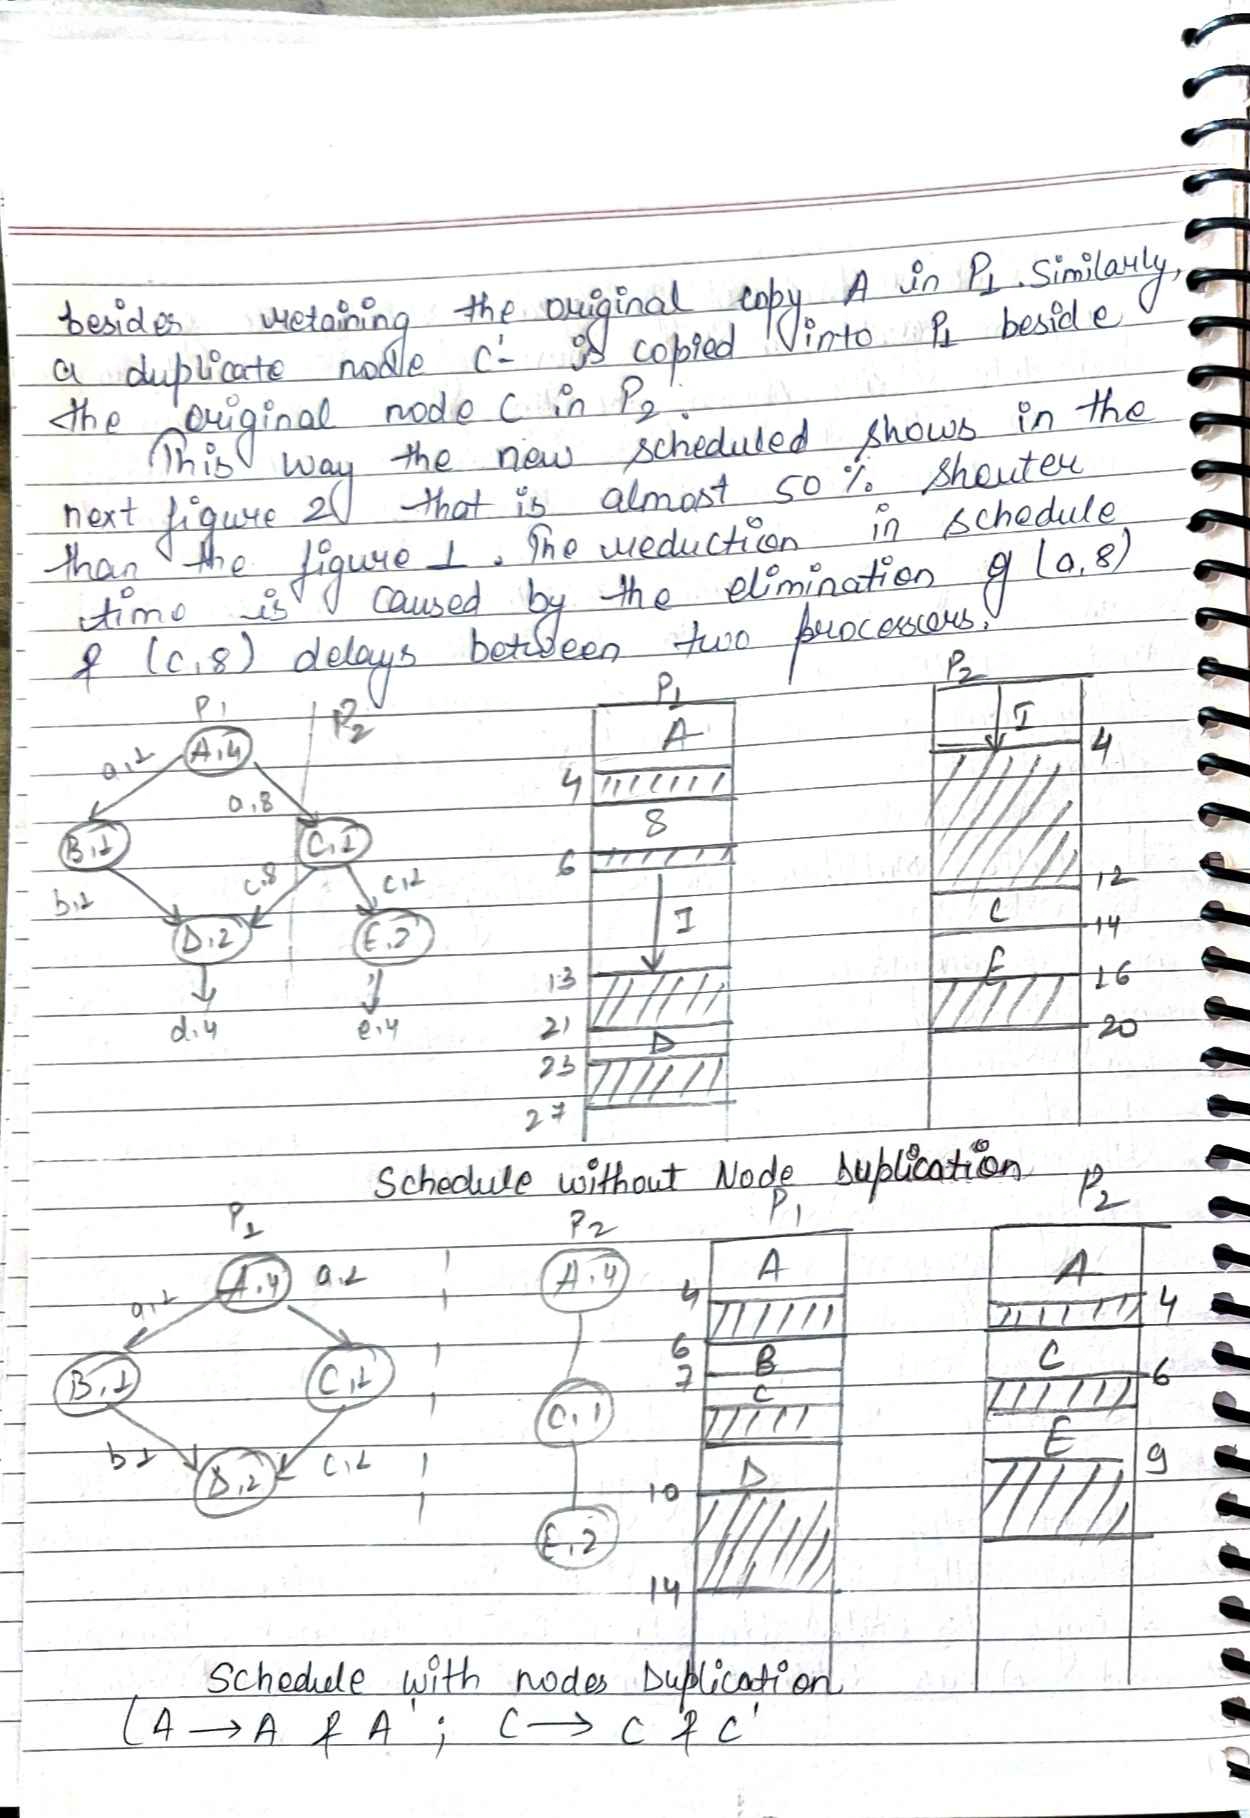 besides retaining the original copy A in P1. Similarly,
a duplicate node C'- is copied into P1 beside
the original node C in P2.
This way the new scheduled shows in the
next figure 2 that is almost 50% shorter
than the figure 1. The reduction in schedule
time is caused by the elimination of (a,8)
& (c,8) delays between two processors.
P1 P2
A,4
a,1
a,8
B,1
C,1
b,1
c,8
c,1
D,2
E,2
d,4
e,4
P1
A
4
8
6
I
13
21
D
23
27
P2
I
4
12
C
14
E
16
20
Schedule without Node Duplication
P1
A,4
a,1
a,1
B,1
C,1
b1
c,1
D,2
P2
A,4
C,1
E,2
P1
A
4
6
B
7
C
D
10
14
P2
A
4
C
6
E
9
Schedule with nodes Duplication
(A → A & A' ; C → C & C'